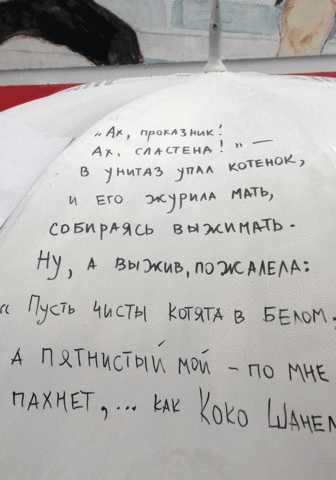 „Ах, проказник!
Ах, сластена!" —
в унитаз упал котенок,
и его журила мать,
собираясь выжимать.
Ну, а выжив, пожалела:
„Пусть чисты котята в белом.
А пятнистый мой – по мне
пахнет,... как Коко Шанел